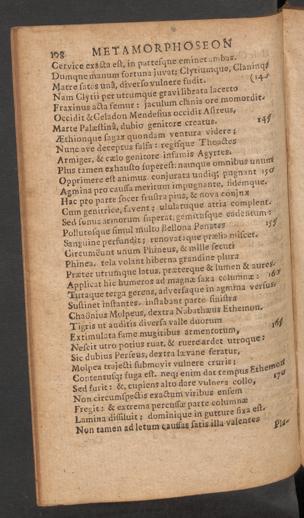 108 METAMORPHOSEON
Cervice exacta est, in partesque eminet ambas.
Dumque manum fortuna juvat; Clytiumque, Claninq;
Matre satos una, diverso vulnere fudit.
Nam Clytii per utrumque gravi librata lacerto (140
Fraxinus acta femur: jaculum Clanis ore momordit.
Occidit & Celadon Mendesius occidit Astreus,
Matre Palæstina, dubio genitore creatus.
Æthionque sagax quondam ventura videre;
Nunc ave deceptus falsa: regisque Thoactes 145
Armiger, & cælo genitore infamis Agyrtes.
Plus tamen exhausto superest: namque omnibus unum
Opprimere est animus. conjurata undiq; pugnant
Agmina pro caussa meritum impugnante, fidemque. 150
Hac pro parte socer frustra pius, & nova conjux
Cum genitrice, favent; ululatuque atria complent.
Sed sonus armorum superat, gemitusque cadentum:
Pollutosque simul multo Bellona Penates
Sanguine perfundit; renovataque prælia miscet. 155
Circumeunt unum Phineus, & mille secuti
Phinea. tela volant hiberna grandine plura
Præter utrumque latus, præterque & lumen & aures.
Applicat hic humeros ad magnæ saxa columnæ: 160
Tutaque terga gerens, adversaque in agmina versus,
Sustinet instantes. instabant parte sinistra
Chaonius Molpeus, dextra Nabathæus Ethemon.
Tigris ut auditis diversa valle duorum
Extimulata fame mugitibus armentorum, 165
Nescit utro potius ruat, & ruere ardet utroque:
Sic dubius Perseus, dextra lævane feratur,
Molpea trajecti submovit vulnere cruris:
Contentusq; fuga est. neq; enim dat tempus Ethemon
Sed furit: &, cupiens alto dare vulnera collo, 170
Non circumspectis exactum viribus ensem
Fregit: & extrema percussæ parte columnæ
Lamina dissiluit: dominique in gutture fixa est.
Non tamen ad letum caussas satis illa valentes
Pla-